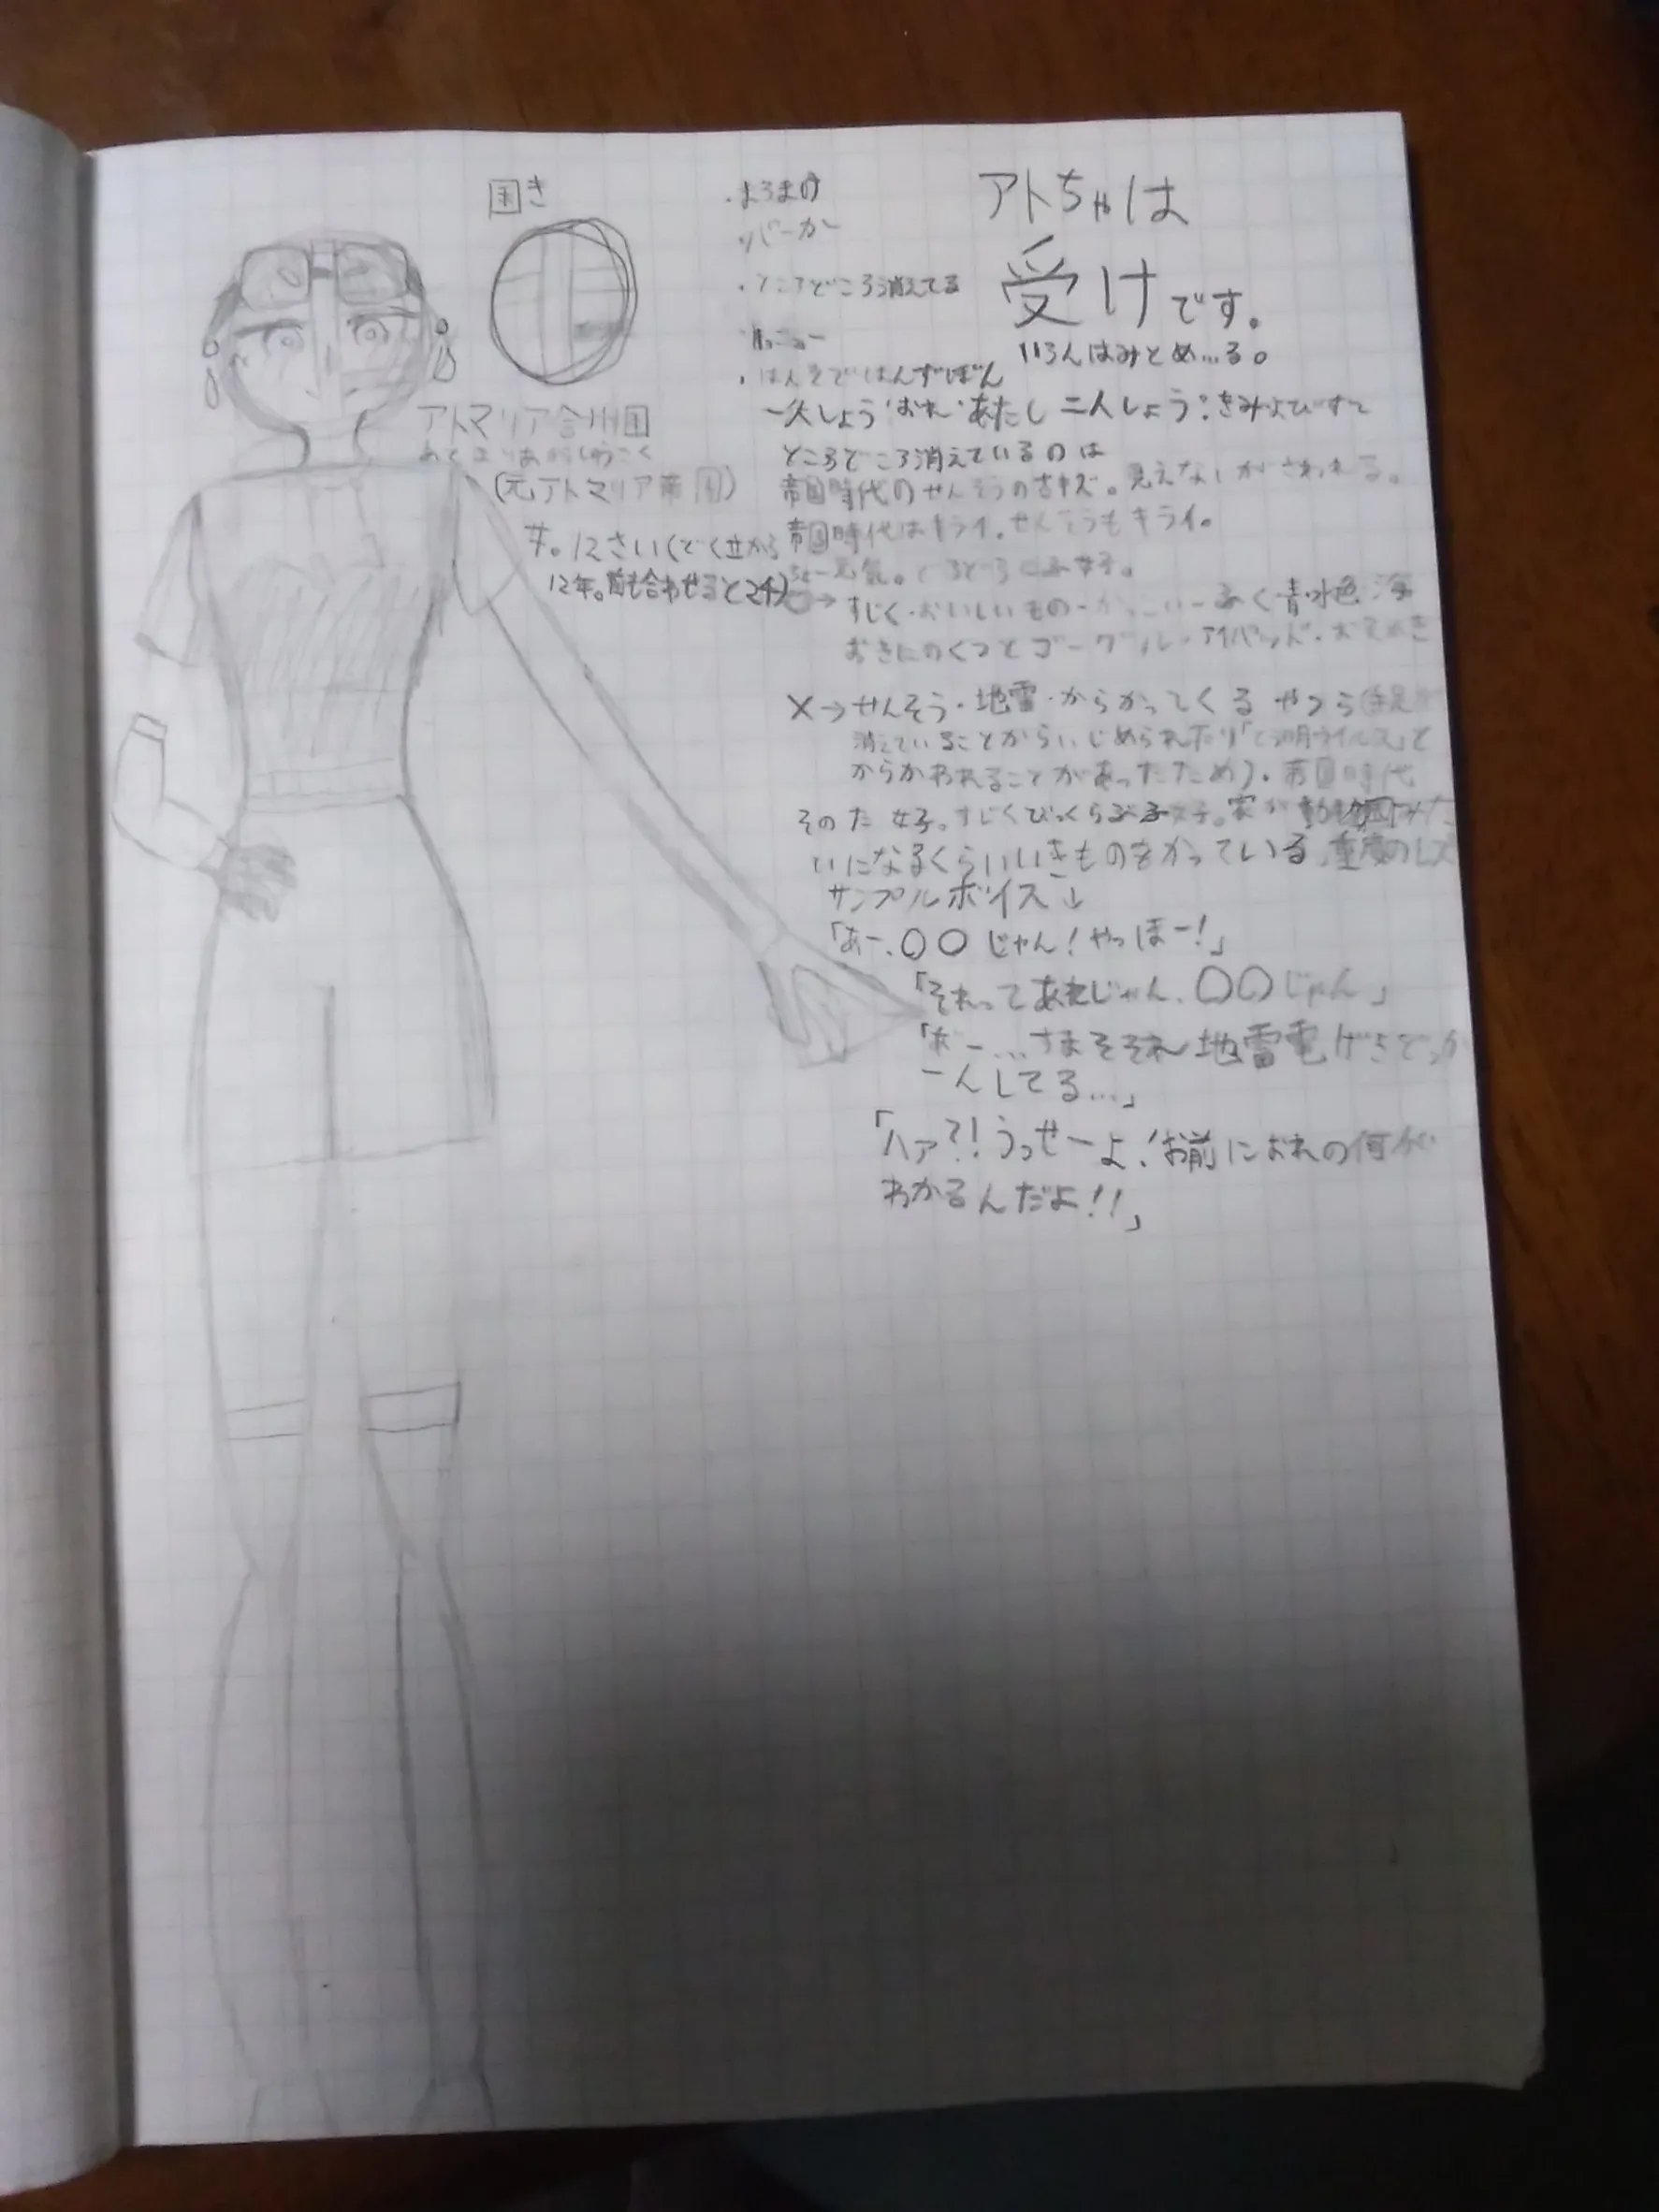 国き
・まろまゆ
パーカー
・ところどころ消えてる
・はんそではんずぼん
アトちゃは
受けです。
いろんはみとめ…る。
アトマリア合州国
あとまりあがっしゅうこく
(元アトマリア帝国)
女。12さい(どく立から
12年。前も合わせると24)
一人しょう:おれ・あたし 二人しょう:きみよびすて
ところどころ消えているのは
帝国時代のせんそうの古キズ。見えないがさわれる。
帝国時代はキライ。せんそうもキライ。
ちょー元気。
→すじく・おいしいもの・かっこいーふく・青・水色・海
おきにのくつとゴーグル・アイパッド・おえかき
×→せんそう・地雷・からかってくるやつら(手足が
消えていることからいじめられたり「とう明ウイルス」と
からかわれることがあったため)・帝国時代
そのた 女子。すじくびっくらぶ女子。家が動物園みた
いになるくらいいきものをかっている。重度のレズ
サンプルボイス↓
「あー、〇〇じゃん!やっほー!」
「それってあれじゃん、〇〇じゃん」
「あー…すまそそれ地雷電げきどっか
ーんしてる…」
「ハァ?!うっせーよ!お前におれの何が
わかるんだよ!!」